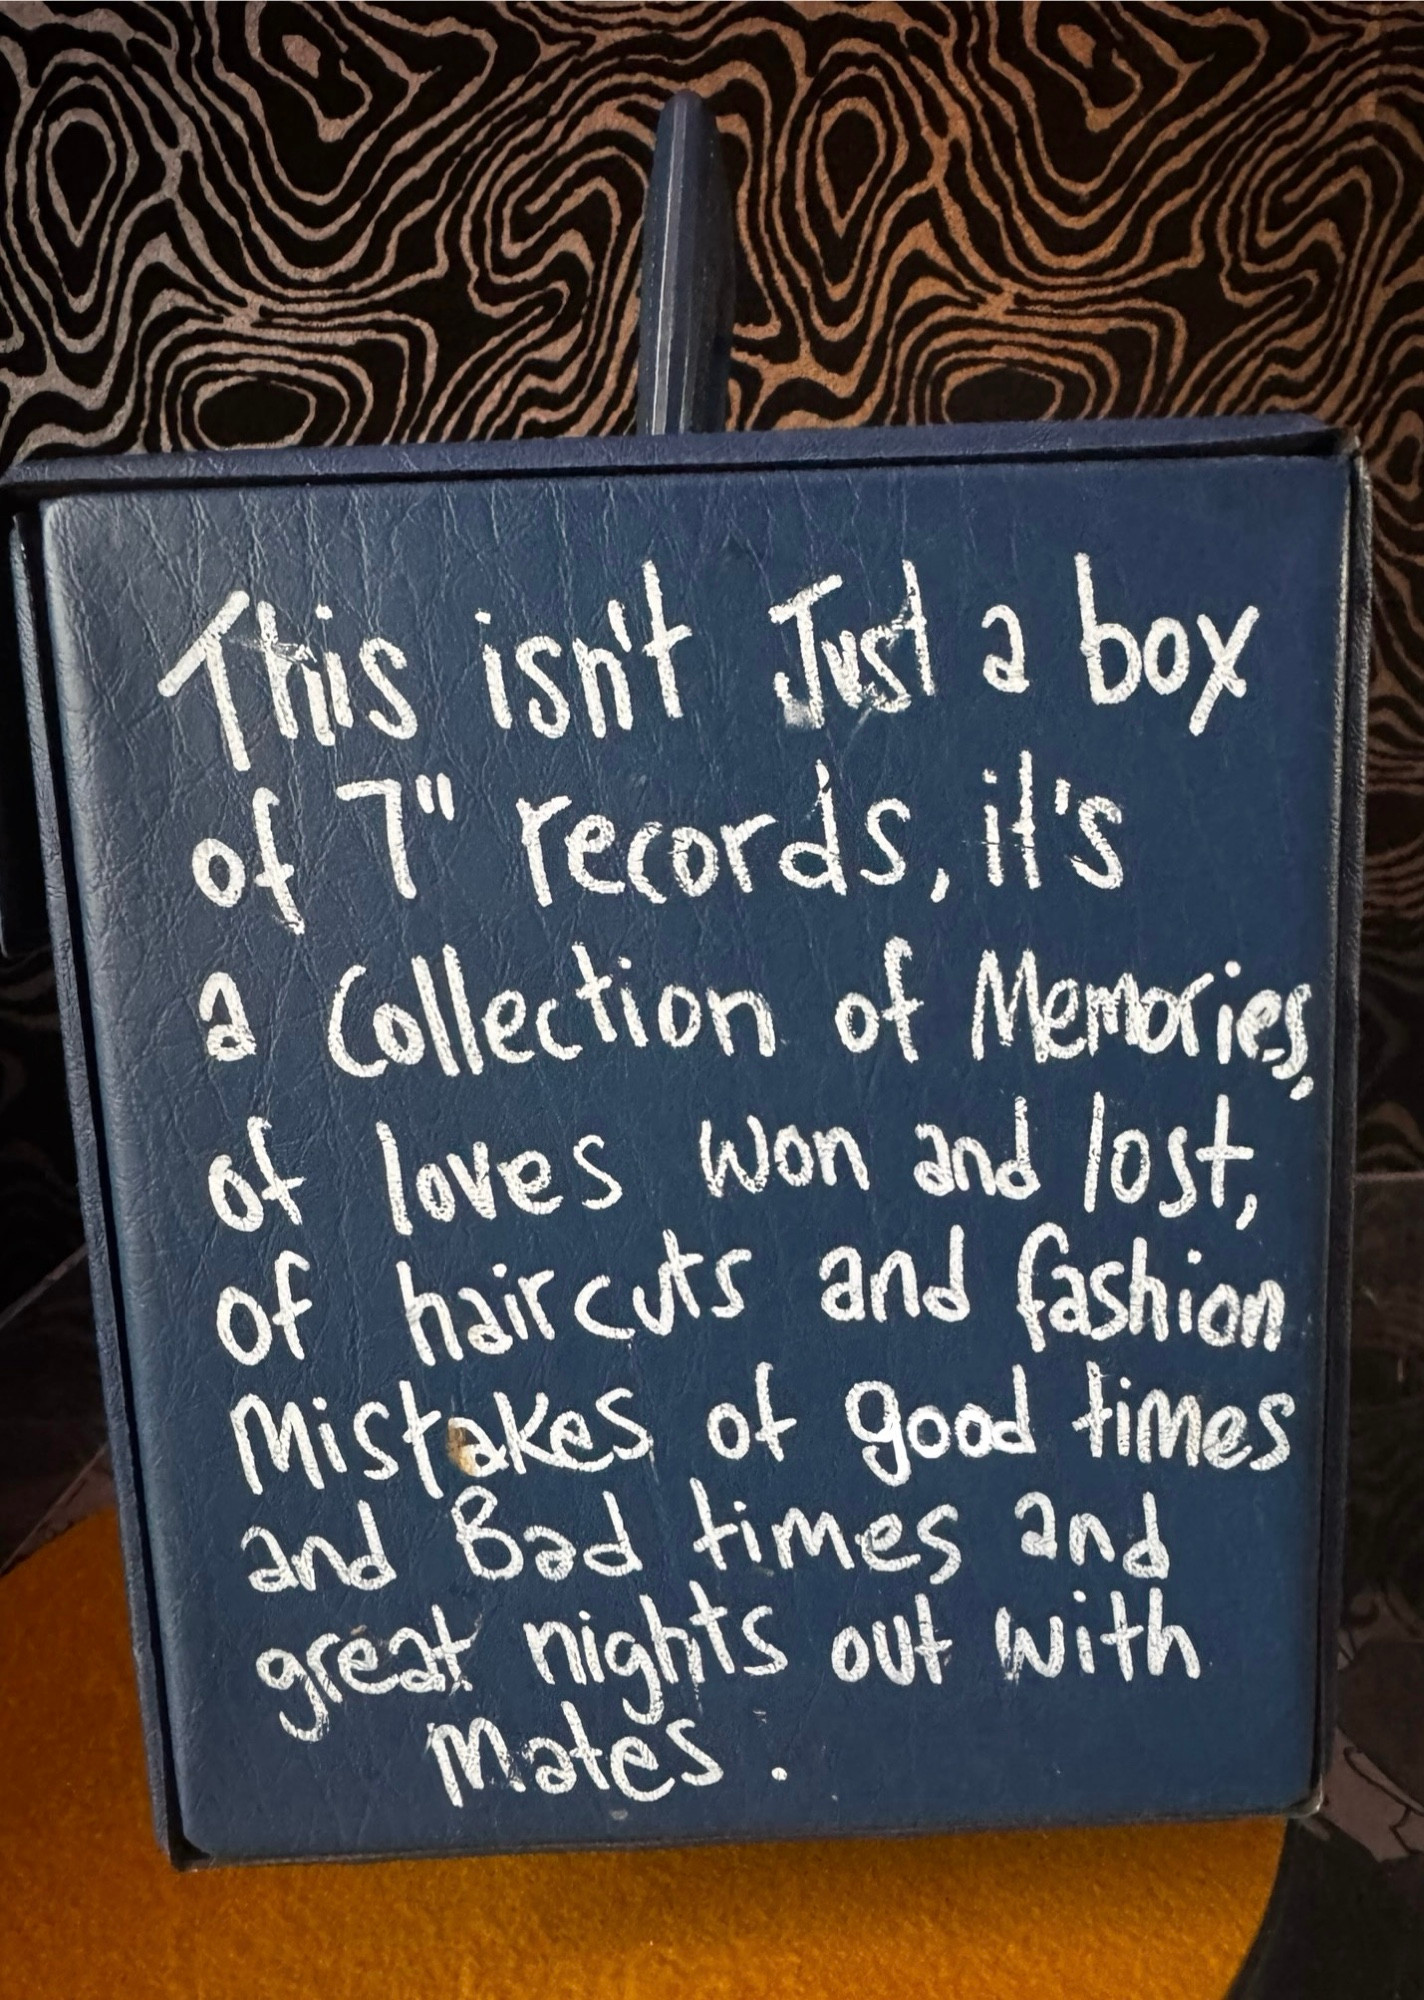 This isn't Just a box
of 7" records, it's
a Collection of Memories,
of loves won and lost,
of haircuts and fashion
Mistakes of good times
and Bad times and
great nights out with
Mates.